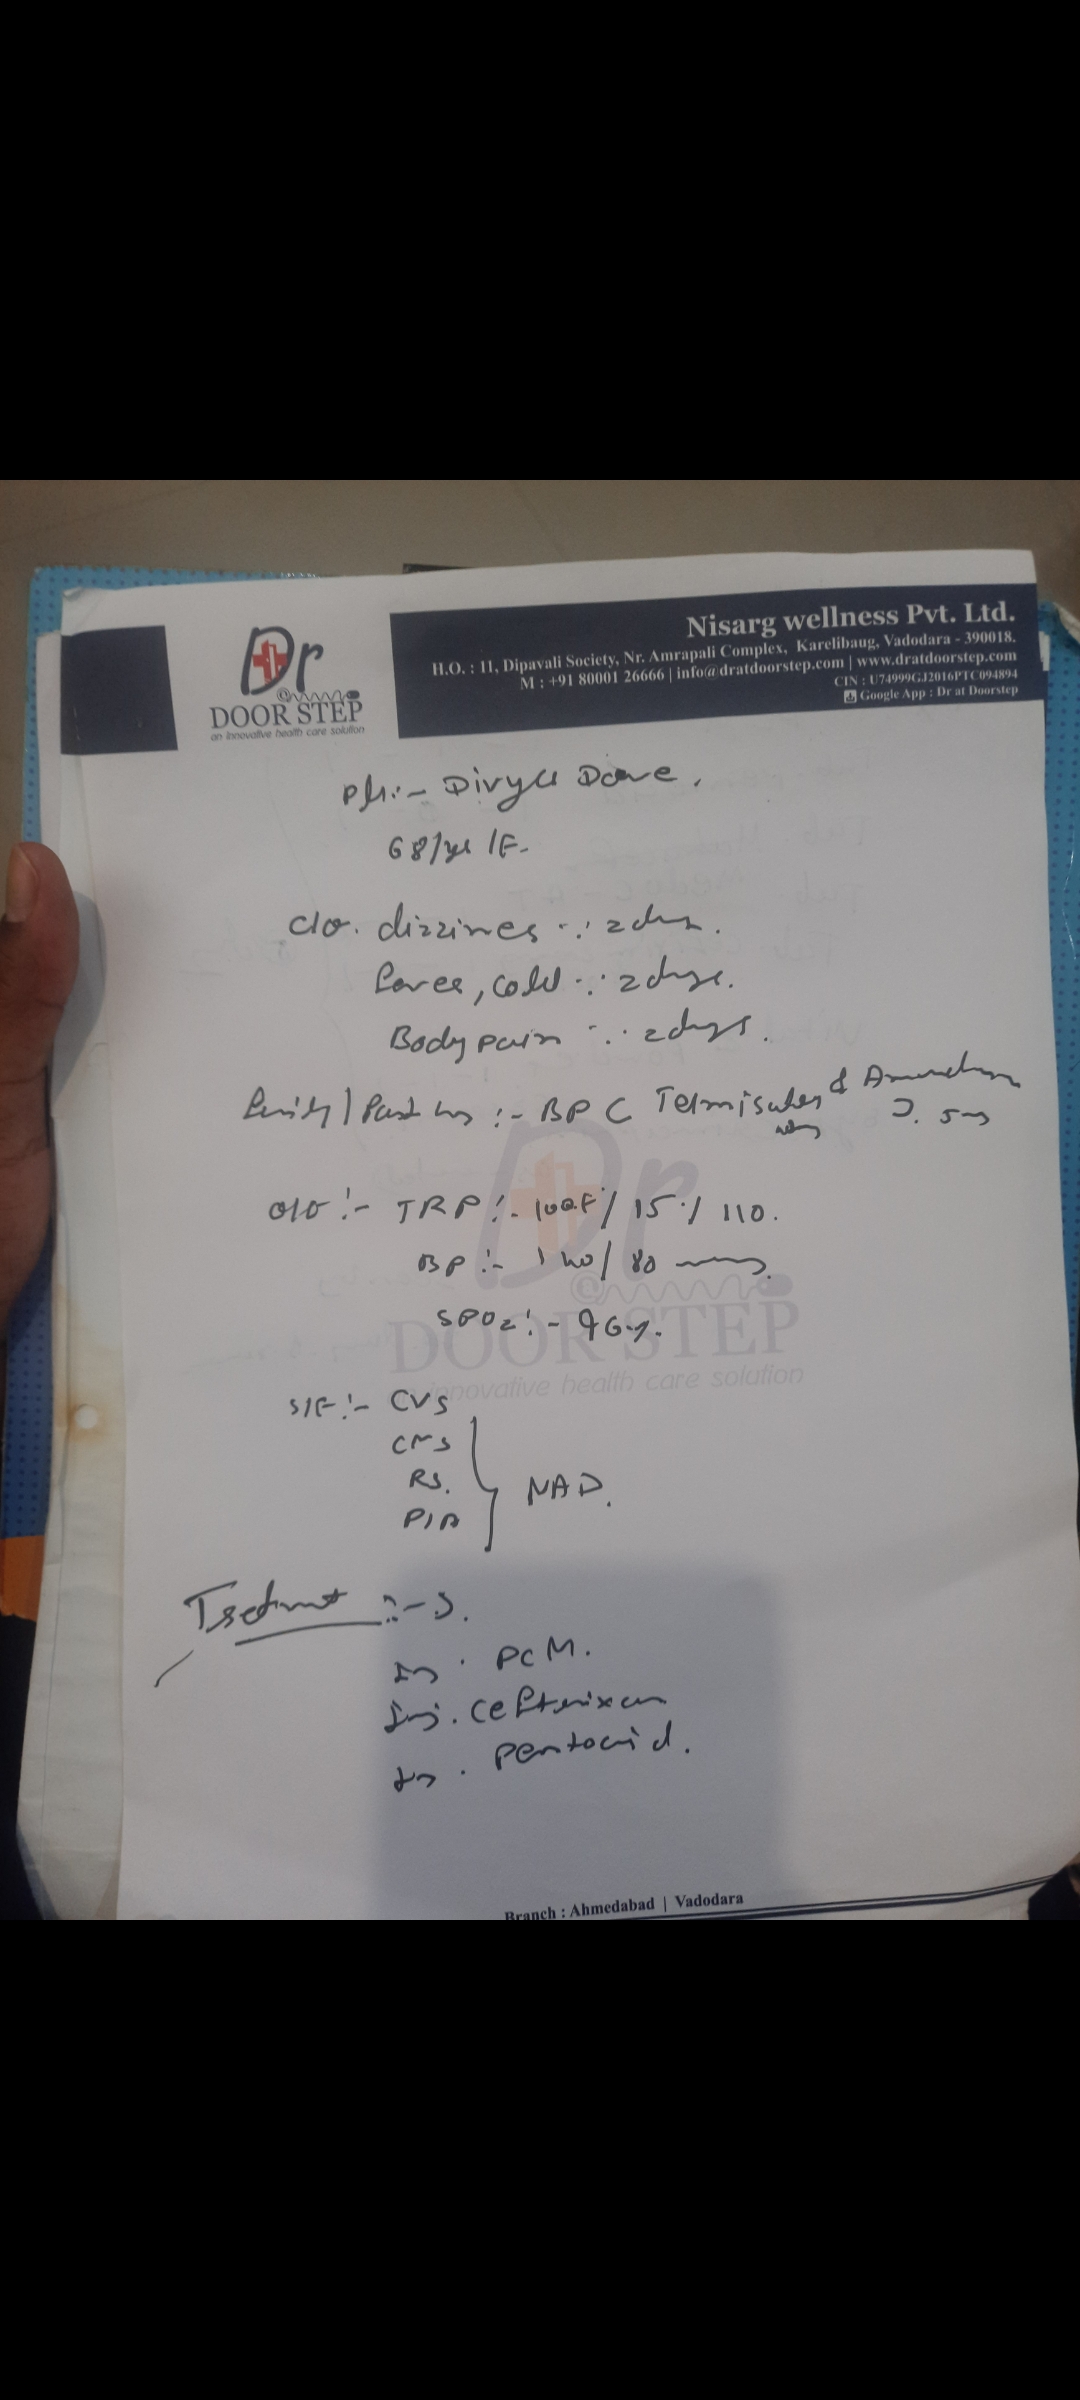 Dr
@
DOOR STEP
an innovative health care solution
Nisarg wellness Pvt. Ltd.
H.O. : 11, Dipavali Society, Nr. Amrapali Complex, Karelibaug, Vadodara - 390018.
M : +91 80001 26666 | info@dratdoorstep.com | www.dratdoorstep.com
CIN : U74999GJ2016PTC094894
Google App : Dr at Doorstep
Divya Dave.
68/yr /F.
c/o. dizzines 2 days.
cold 2 days.
Body pain 2 days.
Past :- BP C
5
O/O :- TRP :- 15 / 110.
BP :- 140/80
SPO2 :- 96%.
S/E :- CVS
CNS
RS.
P/A
NAD.
:- 
PCM.
Inj.
Dr
@
DOOR STEP
innovative health care solution
Branch : Ahmedabad | Vadodara